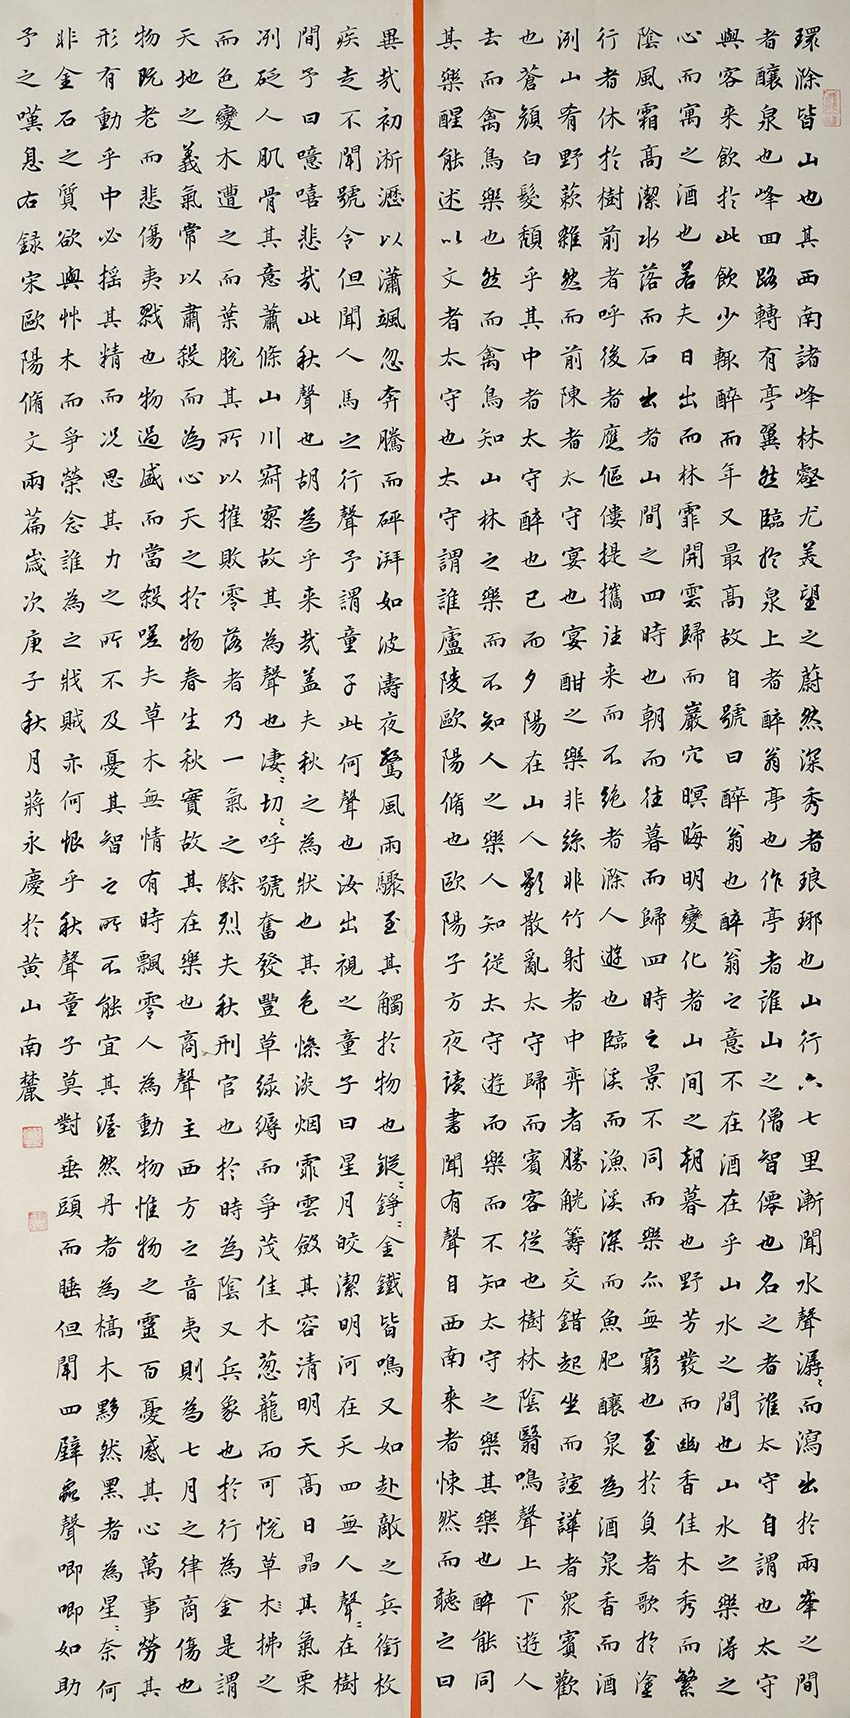 環滁皆山也其西南諸峰林壑尤美望之蔚然深秀者琅琊也山行六七里漸聞水聲潺〻而瀉出於兩峯之間
者釀泉也峰回路轉有亭翼然臨於泉上者醉翁亭也作亭者誰山之僧智僊也名之者誰太守自謂也太守
與客来飲於此飲少輒醉而年又最高故自號曰醉翁也醉翁之意不在酒在乎山水之間也山水之樂得之
心而寓之酒也若夫日出而林霏開雲歸而巖穴暝晦明變化者山間之朝暮也野芳發而幽香佳木秀而繁
陰風霜高潔水落而石出者山間之四時也朝而往暮而歸四時之景不同而樂亦無窮也至於負者歌於塗
行者休於樹前者呼後者應傴僂提攜往来而不絕者滁人遊也臨溪而漁溪深而魚肥釀泉為酒泉香而酒
洌山肴野蔌雜然而前陳者太守宴也宴酣之樂非絲非竹射者中弈者勝觥籌交錯起坐而諠譁者眾賓歡
也蒼顏白髮頹乎其中者太守醉也已而夕陽在山人影散亂太守歸而賓客從也樹林陰翳鳴聲上下遊人
去而禽鳥樂也然而禽鳥知山林之樂而不知人之樂人知從太守遊而樂而不知太守之樂其樂也醉能同
其樂醒能述以文者太守也太守謂誰廬陵歐陽脩也歐陽子方夜讀書聞有聲自西南来者悚然而聽之曰
異哉初淅瀝以瀟颯忽奔騰而砰湃如波濤夜驚風雨驟至其觸於物也鏦〻錚〻金鐵皆鳴又如赴敵之兵銜枚
疾走不聞號令但聞人馬之行聲予謂童子此何聲也汝出視之童子曰星月皎潔明河在天四無人聲〻在樹
間予曰噫嘻悲哉此秋聲也胡為乎来哉蓋夫秋之為狀也其色慘淡烟霏雲斂其容清明天高日晶其氣栗
冽砭人肌骨其意蕭條山川寂寥故其為聲也凄〻切〻呼號奮發豐草綠縟而爭茂佳木葱蘢而可悅草木〻拂之
而色變木遭之而葉脫其所以摧敗零落者乃一氣之餘烈夫秋刑官也於時為陰又兵象也於行為金是謂
天地之義氣常以肅殺而為心天之於物春生秋實故其在樂也商聲主西方之音夷則為七月之律商傷也
物既老而悲傷夷戮也物過盛而當殺嗟夫草木無情有時飄零人為動物惟物之靈百憂感其心萬事勞其
形有動乎中必搖其精而況思其力之所不及憂其智之所不能宜其渥然丹者為槁木黟然黑者為星〻奈何
非金石之質欲與艸木而爭榮念誰為之戕賊亦何恨乎秋聲童子莫對垂頭而睡但聞四壁蟲聲唧唧如助
予之嘆息右録宋歐陽脩文兩篇歲次庚子秋月蔣永慶於黄山南麓